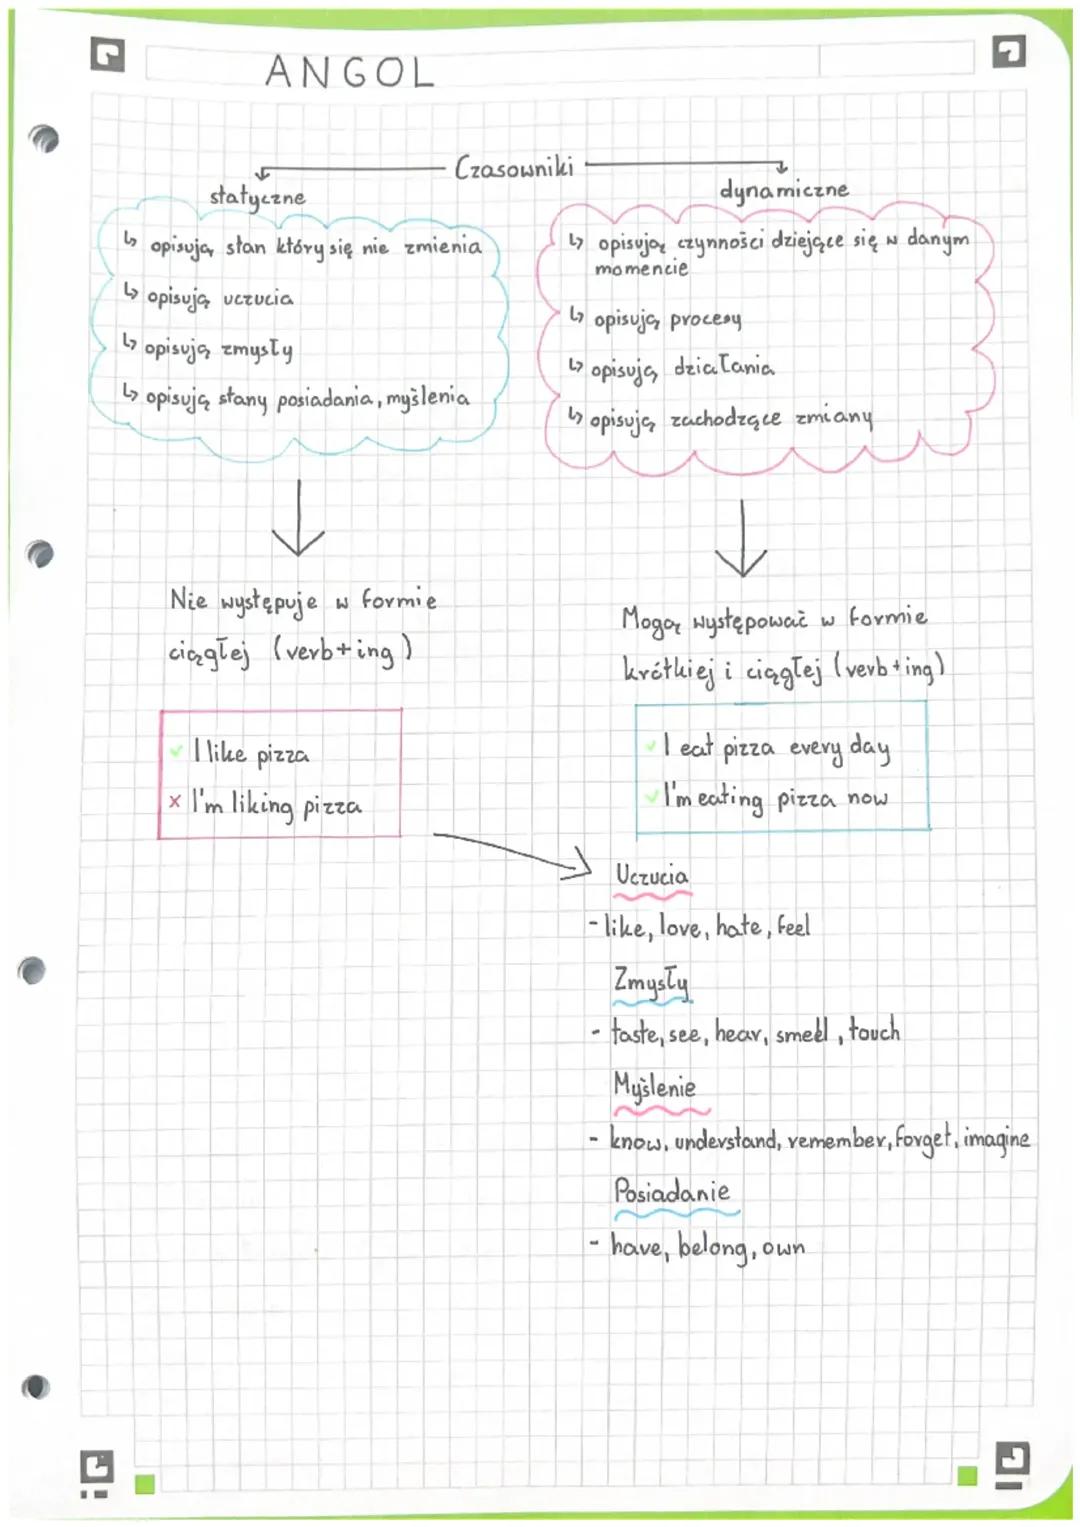 ANGOL
Czasowniki
statyczne
↳ opisują stan który się nie zmienia
↳ opisują uczucia
↳ opisują zmysły
↳ opisują stany posiadania, myślenia
Nie występuje w formie
ciągłej (verb+ing)
✓ I like pizza
x I'm liking pizza
dynamiczne
↳ opisują czynności dziejące się w danym
momencie
↳ opisują procesy
↳ opisują działania
↳ opisują zachodzące zmiany
Mogą występować w formie
krótkiej i ciągłej (verb+ing)
✓ I eat pizza every day
✓ I'm eating pizza now
Uczucia
- like, love, hate, feel
Zmysły
- taste, see, hear, smell, touch
Myślenie
- know, understand, remember, forget, imagine
Posiadanie
- have, belong, own